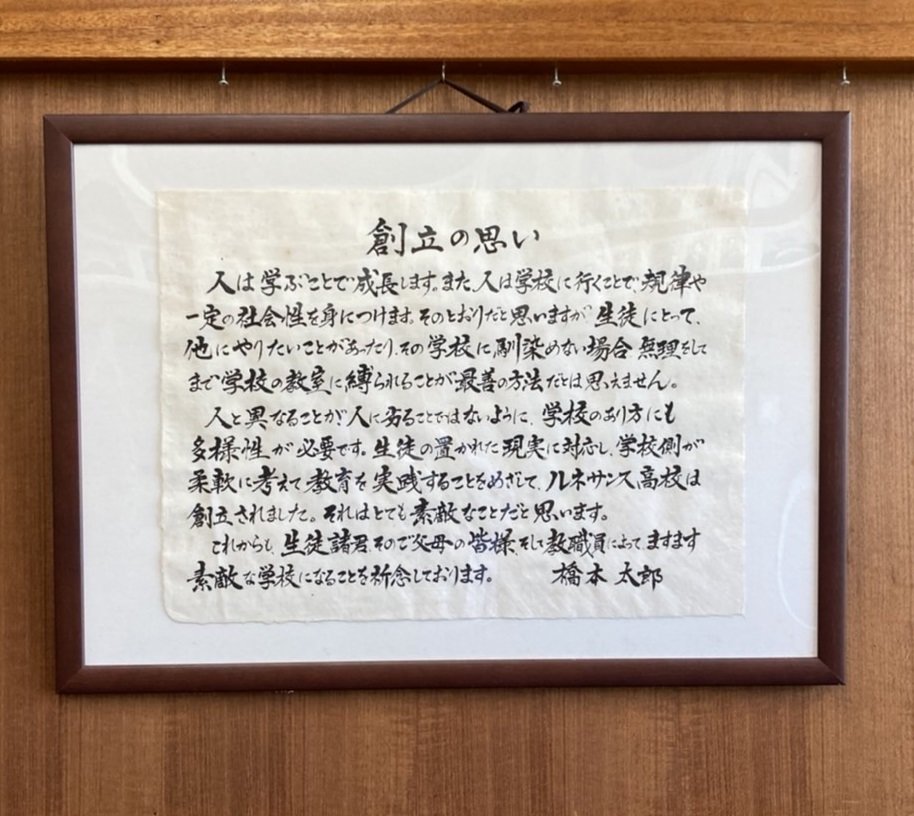 創立の思い
人は学ぶことで成長します。また、人は学校に行くことで、規律や
一定の社会性を身につけます。そのとおりだと思いますが、生徒にとって、
他にやりたいことがあったり、その学校に馴染めない場合、無理をして
まで学校の教室に縛られることが最善の方法だとは思えません。
人と異なることが人に劣ることではないように、学校のあり方にも
多様性が必要です。生徒の置かれた現実に対応し、学校側が
柔軟に考えて教育を実践することをめざして、ルネサンス高校は
創立されました。それはとても素敵なことだと思います。
これからも、生徒諸君、そのご父母の皆様、そして教職員によって、ますます
素敵な学校になることを祈念しております。 橋本 太郎